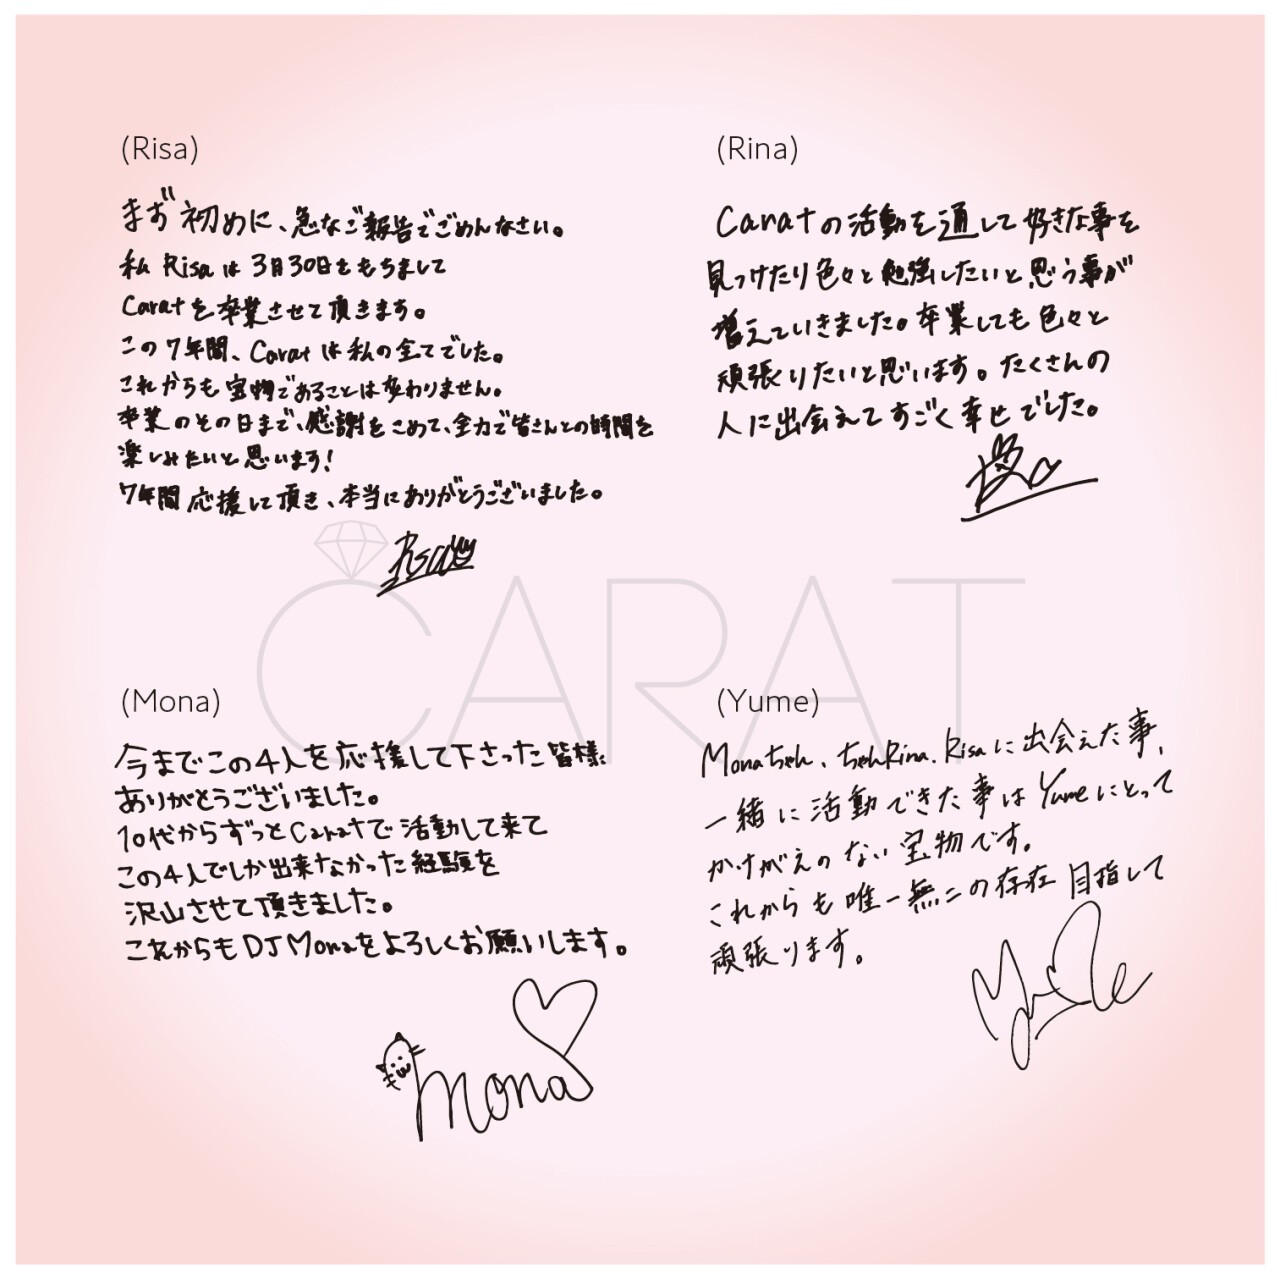 (Risa)
まず初めに、急なご報告でごめんなさい。
私 Risaは 3月30日をもちまして
Caratを卒業させて頂きます。
この7年間、Caratは私の全てでした。
これからも宝物であることは変わりません。
卒業のその日まで、感謝をこめて、全力で皆さんとの時間を
楽しみたいと思います!
7年間応援して頂き、本当にありがとうございました。
Risa
(Rina)
Caratの活動を通して好きな事を
見つけたり色々と勉強したいと思う事が
増えていきました。卒業しても色々と
頑張りたいと思います。たくさんの
人に出会えてすごく幸せでした。
CARAT
(Mona)
今までこの4人を応援して下さった皆様
ありがとうございました。
10代からずっとCaratで活動して来て
この4人でしか出来なかった経験を
沢山させて頂きました。
これからもDJ Monaをよろしくお願いします。
Mona
(Yume)
Monaちゃん、ちゃんRina、Risaに出会えた事、
一緒に活動できた事はYumeにとって
かけがえのない宝物です。
これからも唯一無二の存在目指して
頑張ります。
Yume